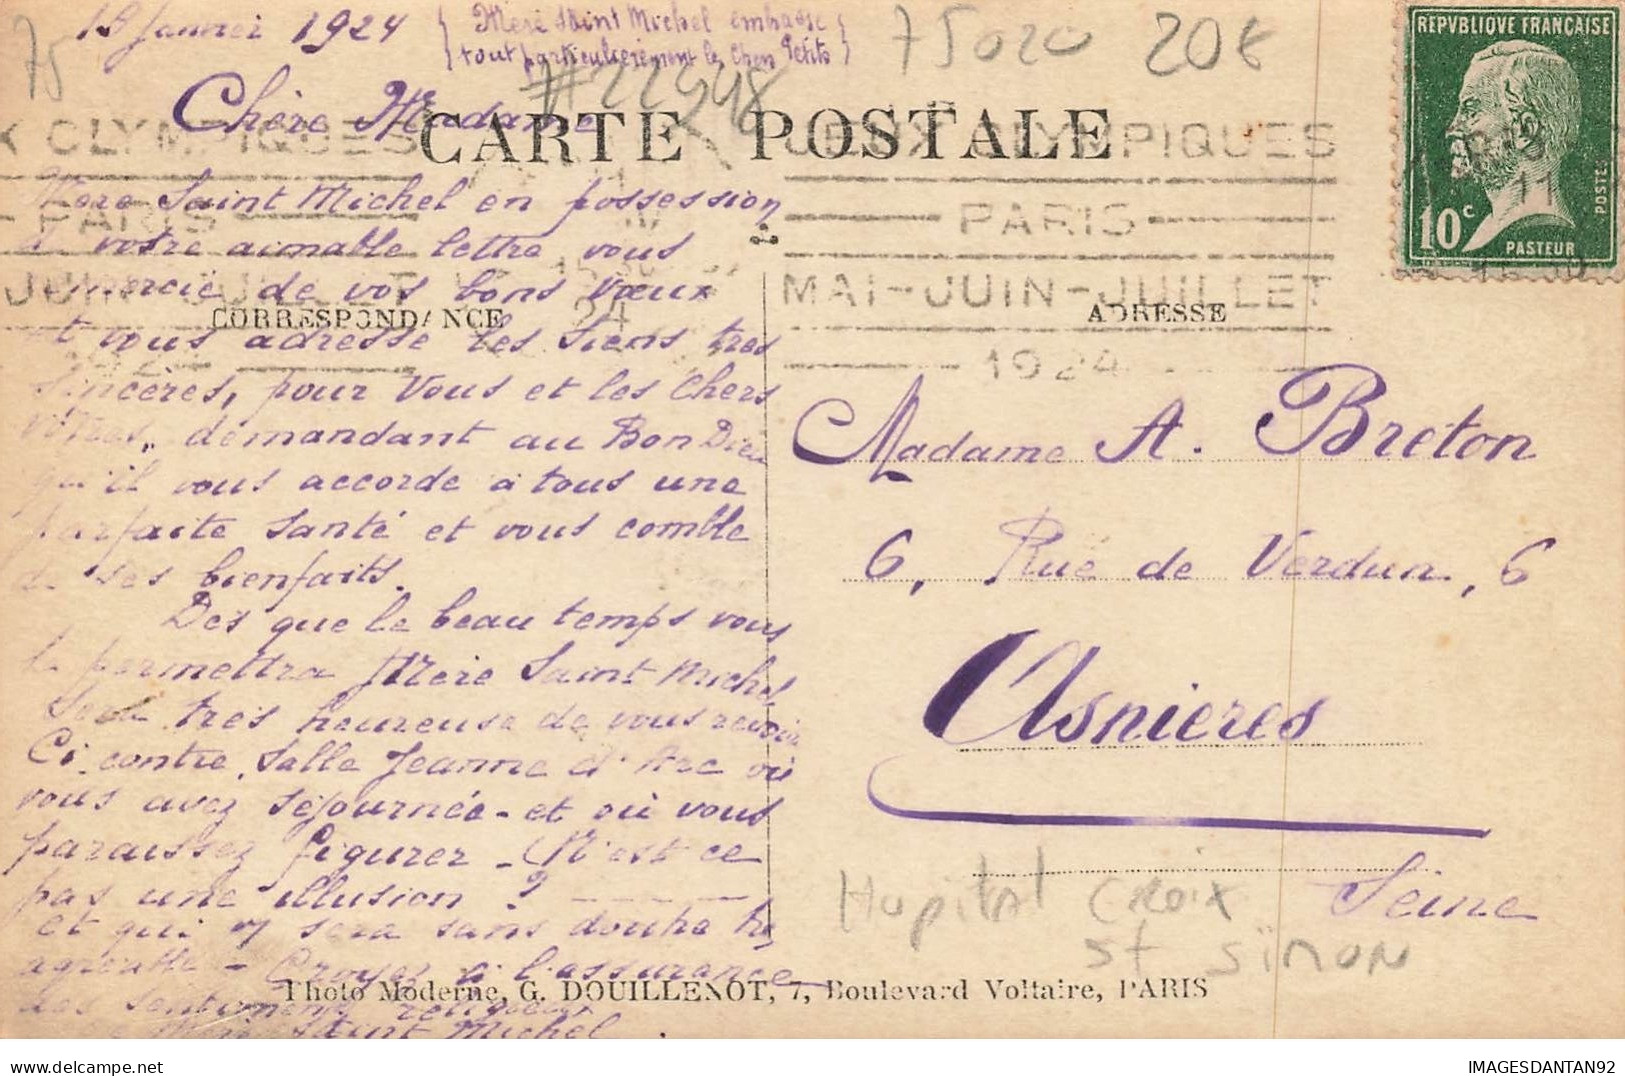 75
18 Janvier 1924
Mère Saint Michel embrasse
tout particulièrement les Chers Petits
75020 20€
#22548
Chère Madame
CARTE POSTALE
X OLYMPIQUES
PARIS
JEUX OLYMPIQUES
PARIS
MAI-JUIN-JUILLET
1924
REPVBLIQVE FRANÇAISE
10c
PASTEUR
POSTES
Mère Saint Michel en possession
de votre aimable lettre vous
remercie de vos bons vœux
CORRESPONDANCE
ADRESSE
et vous adresse les Siens très
Sincères, pour Vous et les Chers
Vôtres, demandant au Bon Dieu
qu'il vous accorde à tous une
parfaite Santé et vous comble
de ses bienfaits.
Dès que le beau temps vous
le permettra Mère Saint Michel
sera très heureuse de vous revoir
Ci-contre, Salle Jeanne d'Arc où
vous avez séjournée - et où vous
paraissez figurer - N'est ce
pas une illusion ?
et qui y sera sans doute
- Croyez à l'assurance
des Sentiments religieux
Mère Saint Michel.
Madame A. Breton
6, Rue de Verdun, 6
Asnieres
Seine
Hopital Croix
St Simon
Photo Moderne, G. DOUILLENOT, 7, Boulevard Voltaire, PARIS
IMAGESDANTAN92